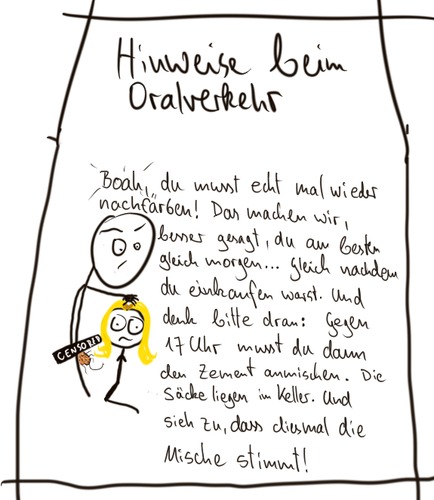 Hinweise beim
Oralverkehr
Boah, du musst echt mal wieder
nachfärben! Das machen wir,
besser gesagt, du am besten
gleich morgen... gleich nachdem
du einkaufen warst. Und
denk bitte dran: Gegen
17 Uhr musst du dann
den Zement anmischen. Die
Säcke liegen im Keller. Und
sieh zu, dass diesmal die
Mische stimmt!
CENSORED